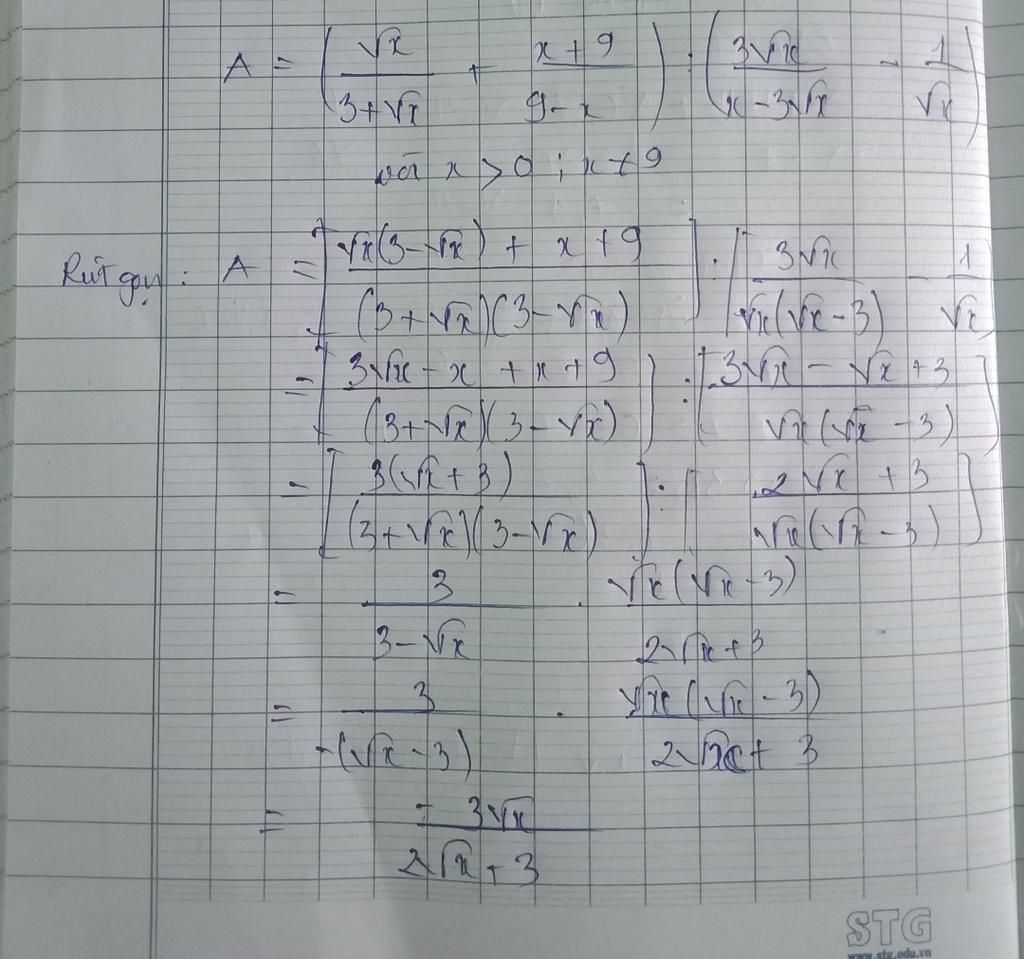 A = (√x/(3+√x) + (x+9)/(9-x)) : (3√x/(x-3√x) - 1/√x)
với x > 0 ; x ≠ 9
Rút gọn : A = [(√x(3-√x) + x + 9)/((3+√x)(3-√x))] : [3√x/(√x(√x-3)) - 1/√x
= [(3√x - x + x + 9)/((3+√x)(3-√x))] : [(3√x - √x + 3)/(√x(√x-3))]
= [3(√x+3)/((3+√x)(3-√x))] : [(2√x + 3)/(√x(√x-3))]
= 3/(3-√x) . √x(√x-3)/(2√x+3)
= 3/(-(√x-3)) . √x(√x-3)/(2√x+3)
= -3√x/(2√x+3)
STG
www.stg.edu.vn